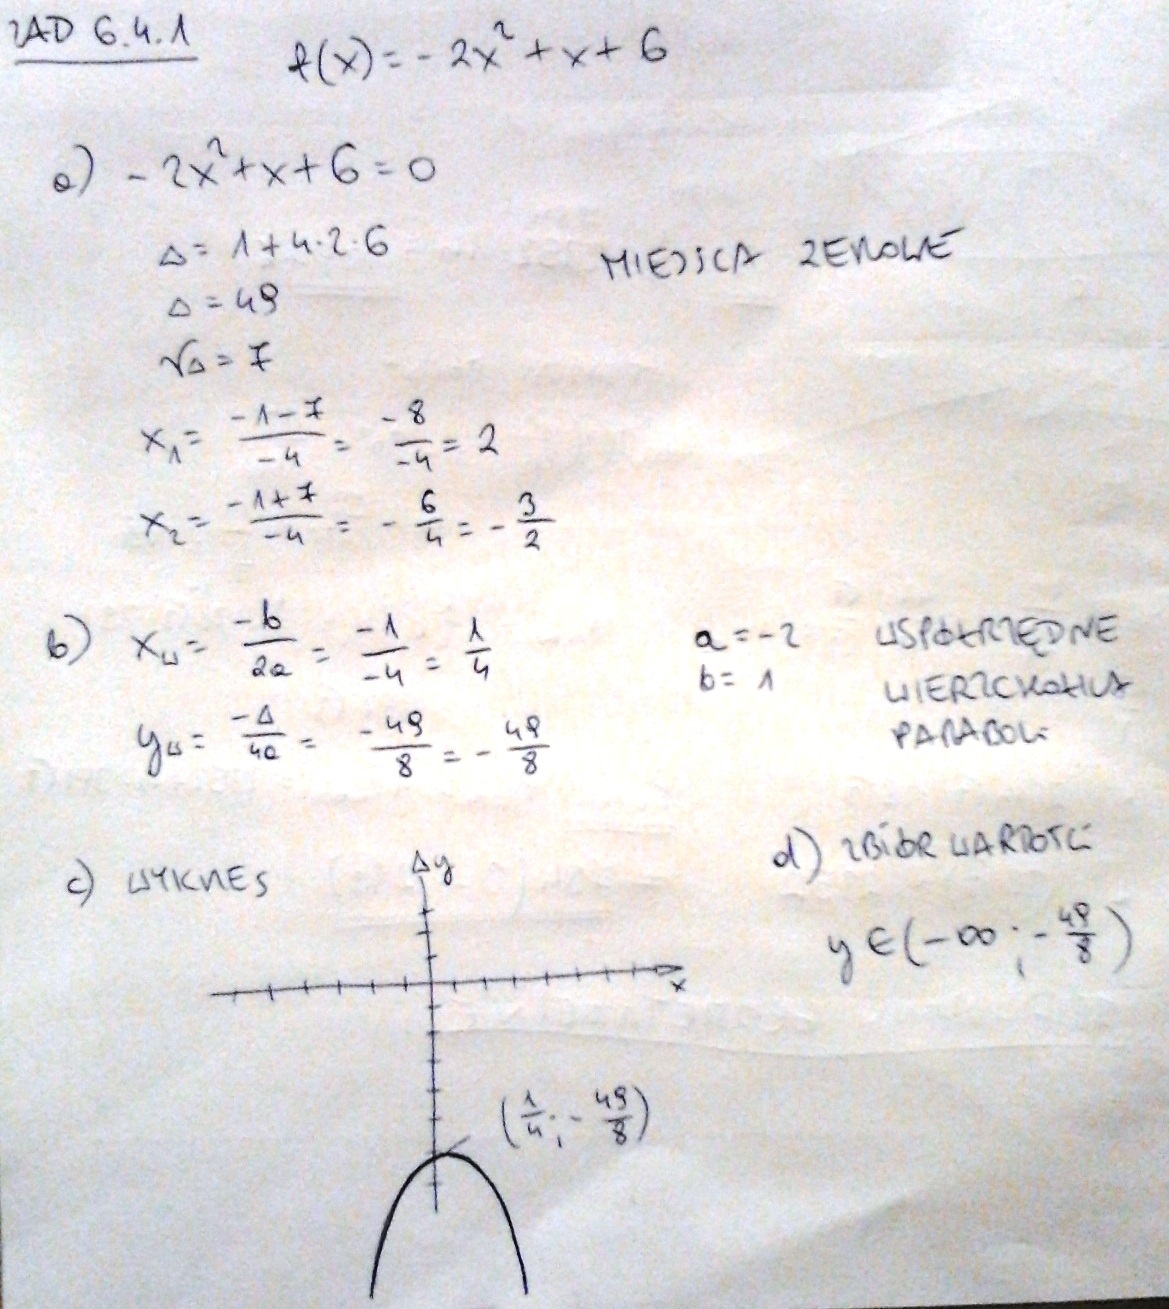 ZAD 6.4.1
f(x) = -2x² + x + 6
a) -2x² + x + 6 = 0
Δ = 1 + 4·2·6
MIEJSCA ZEROWE
Δ = 49
√Δ = 7
x₁ = (-1-7)/(-4) = (-8)/(-4) = 2
x₂ = (-1+7)/(-4) = -6/4 = -3/2
b) xw = -b/2a = (-1)/(-4) = 1/4
a = -2
b = 1
WSPÓŁRZĘDNE
WIERZCHOŁKA
PARABOLI
yw = -Δ/4a = -49/8 = -49/8
c) WYKRES
y
x
(1/4; -49/8)
d) ZBIÓR WARTOŚCI
y ∈ (-∞; -49/8)